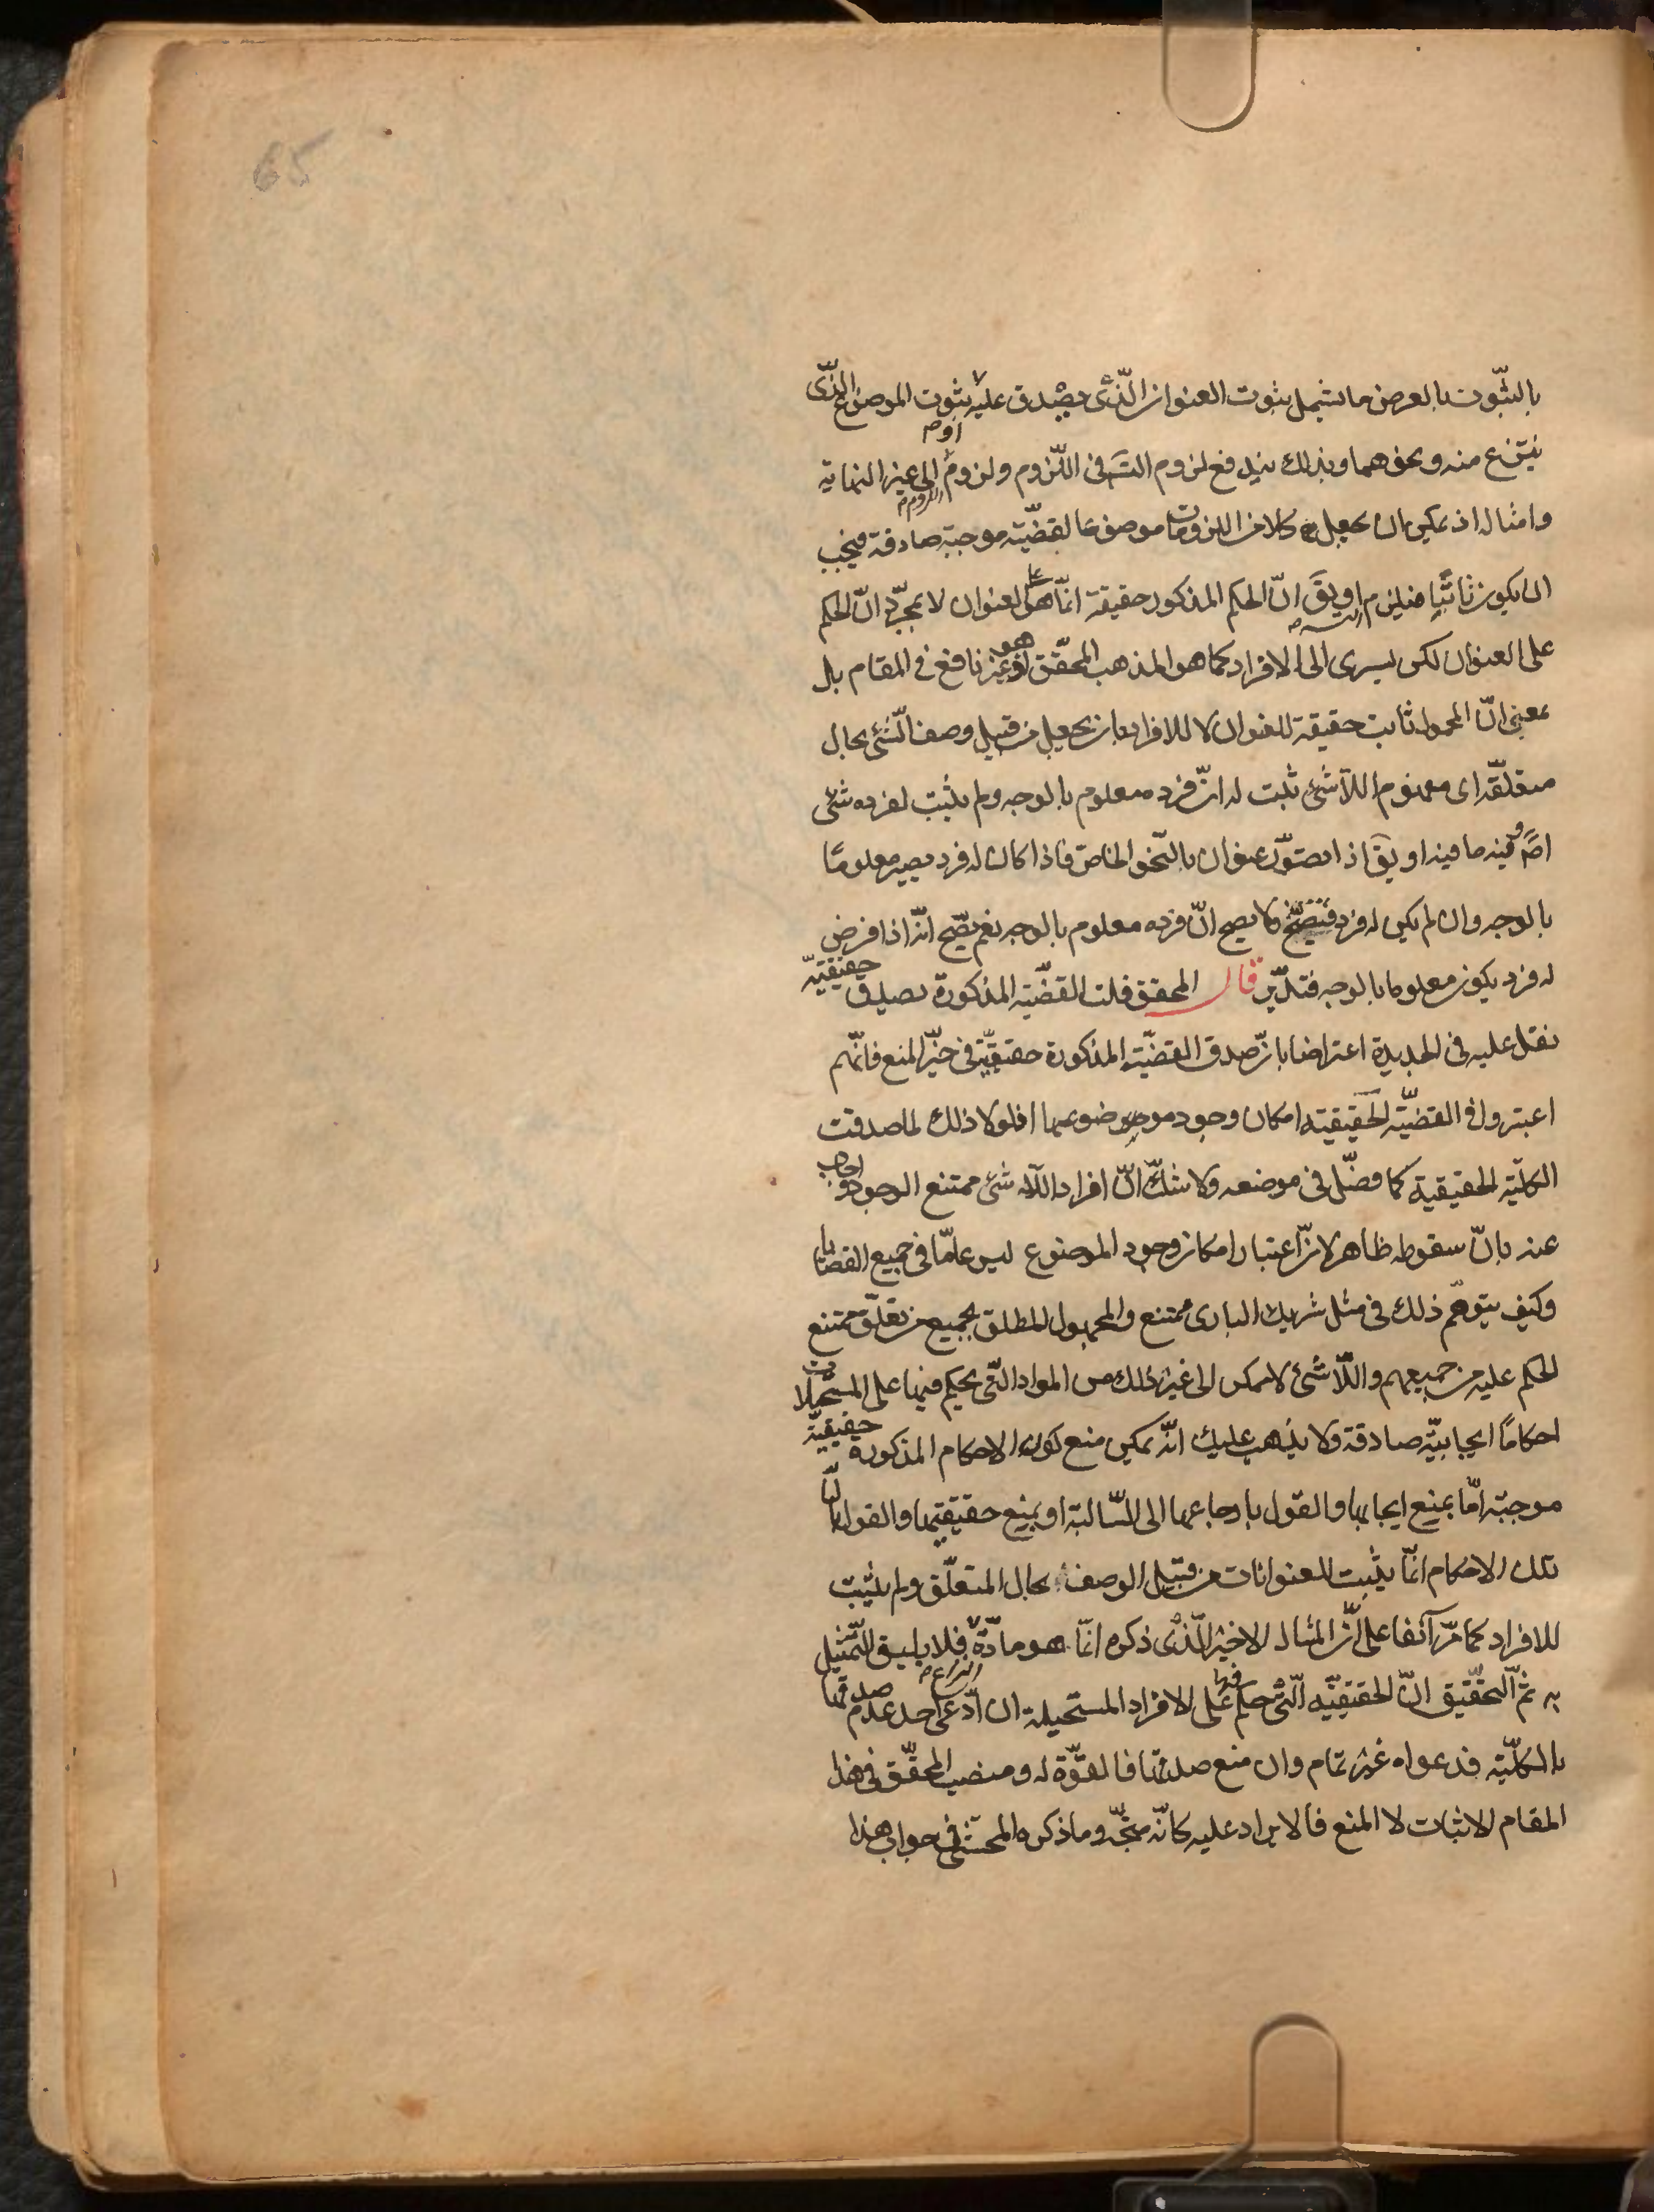 65
بالثبوت بالعرض ما يشمل ثبوت العنوان الذى يصدق عليه ثبوت الموضوع الذى
ينتزع منه ونحوهما وبذلك يندفع لزوم التسـ فى اللزوم ولزوم اللزوم الى غير النهاية
وامثاله اذ يمكن ان يجعل كلا من اللزومات موضوعا لقضية موجبة صادقة فيجب
ان يكون ثابتا فيلزم التسـ او يقَ انّ الحكم المذكور حقيقة انّما هو على العنوان لا بمجرّد انّ الحكم
على العنوان لكن يسرى الى الافراد كما هو المذهب المحقق اذ هو غير نافع فى المقام بل
بمعنى انّ المحمول ثابت حقيقة للعنوان لا للافراد بان يجعل من قبيل وصف الشئ بحال
متعلقه اى مفهوم اللاشئ ثبت له انّ فرده معلوم بالوجه ولم يثبت لفرده شئ
اصَ وفيه ما فيه او يقَ اذا تصوّر عنوان بالنحو الخاص فاذا كان له فرد يصير معلومًا
بالوجه وان لم يكن له فرد فلا يصح انّ فرده معلوم بالوجه نعم يصح انّه اذا فرض
له فرد يكون معلوما بالوجه فتدبّر قال المحقق قلت القضية المذكورة تصدق حقيقيّة
نقل عليه فى الجديدة اعتراضا بانّ صدق القضية المذكورة حقيقيّة فى حيّز المنع فانّهم
اعتبروا فى القضيّة الحقيقية امكان وجود موضوعها اذ لولا ذلك لما صدقت
الكليّة الحقيقية كما فصّل فى موضعه ولا شكّ انّ افراد اللاشئ ممتنع الوجود واجاب
عنه بانّ سقوطه ظاهر لانّ اعتبار امكان وجود الموضوع ليس عامّا فى جميع القضايا
وكيف يتوهّم ذلك فى مثل شريك البارى ممتنع والمجهول المطلق بجميع من تعلّق ممتنع
الحكم عليه من جميعهم واللاشئ لا يمكن الى غير ذلك من المواد التى يحكم فيها على المستحيلات
احكامًا ايجابيّة صادقة ولا يذهب عليك انّه يمكن منع كون الاحكام المذكورة حقيقيّة
موجبة امّا بمنع ايجابها والقول بارجاعها الى السّالبة او بمنع حقيقيتها والقول بانّ
تلك الاحكام انّما يثبت للعنوانات من قبيل الوصف بحال المتعلّق ولم يثبت
للافراد كما مرّ آنفا على انّ المثال الاخير الّذى ذكره انّما هو مادّة النزاع فلا يليق التمثيل
به ثمّ التحقيق انّ الحقيقيّة الّتى حكم فيها على الافراد المستحيلة ان ادّعى احد عدم صدقها
بالكليّة فدعواه غير تمام وان منع صدقها فالقوّة له ومنصب المحقّق فى هذا
المقام الاثبات لا المنع فالايراد عليه كانّه متجّه وما ذكره المحشى فى جواب هذا